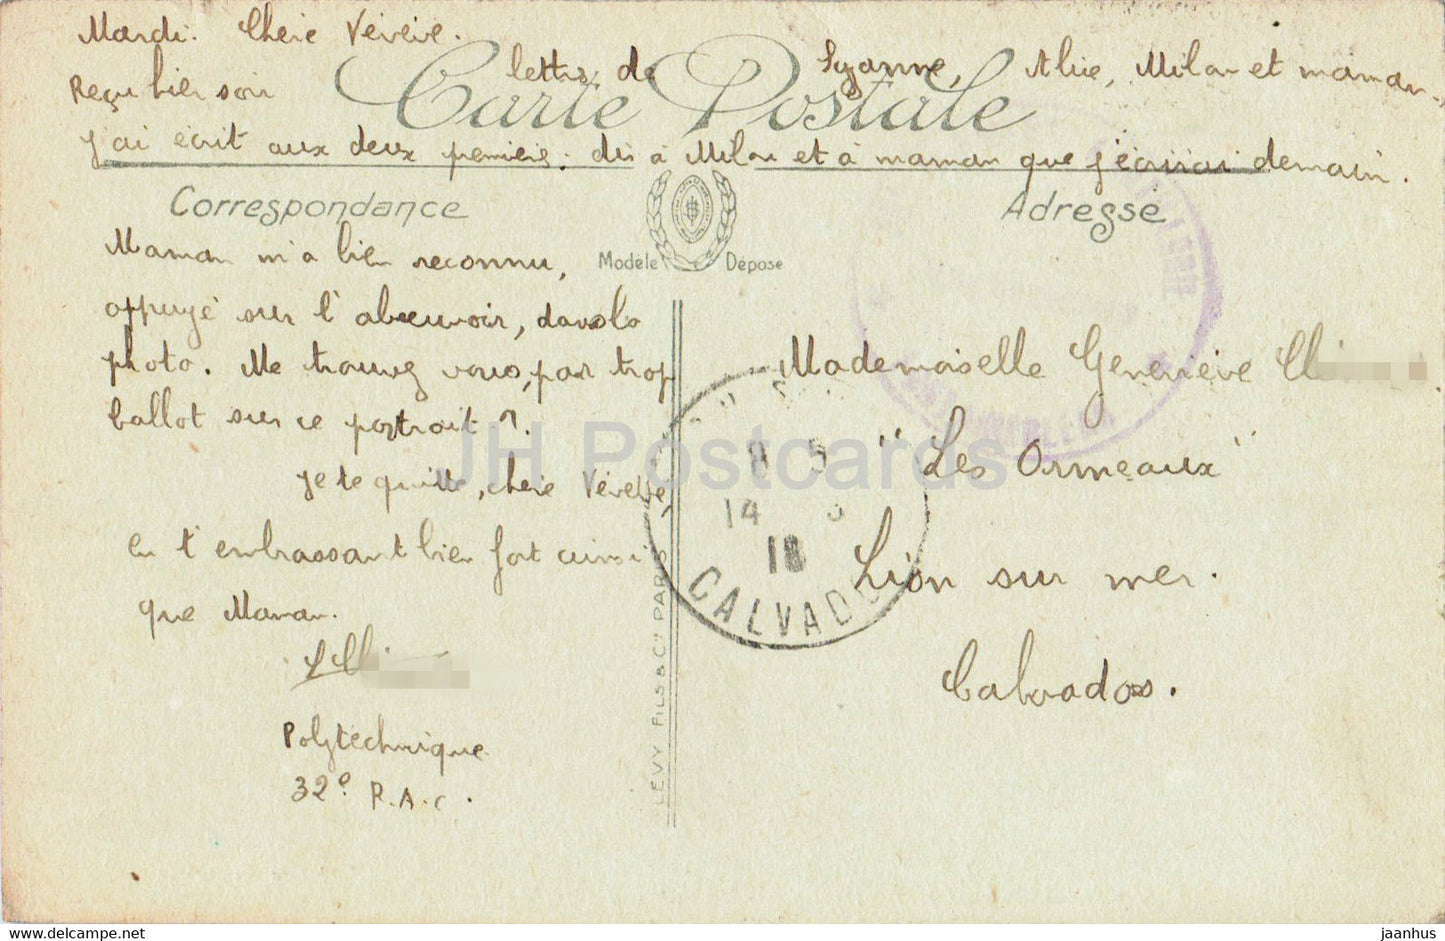 Mardi. Chère Vévève.
Reçu hier soir lettres de Suzanne, Alice, Milou et maman.
J'ai écrit aux deux premiers : dis à Milou et à maman que j'écrirai demain.
Carte Postale
Correspondance
Adresse
Modèle Déposé
Maman m'a bien reconnu,
appuyé sur l'abreuvoir, dans la
photo. Me trouvez vous, pas trop
ballot sur ce portrait ?
Je te quitte, chère Vévève,
en t'embrassant bien fort ainsi
que Maman.
Polytechnique
32e R.A.C.
LÉVY FILS & Cie PARIS
Mademoiselle Geneviève
"Les Ormeaux"
Lion sur mer.
Calvados.
8 5
14
18
CALVADOS
JH Postcards
delcampe.net
jaanhus